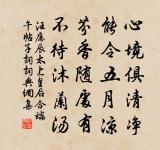 心境俱清净
能令五月凉
芬香随处有
不待沐兰汤
汪应辰太上皇后合端
午帖子词词典网集